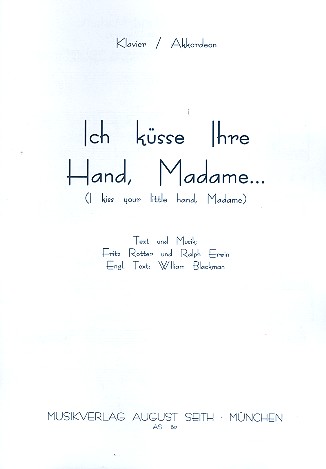 Klavier / Akkordeon
Ich küsse Ihre
Hand, Madame...
(I kiss your little hand, Madame)
Text und Musik:
Fritz Rotter und Ralph Erwin
Engl. Text: William Blackman
MUSIKVERLAG AUGUST SEITH · MÜNCHEN
AS